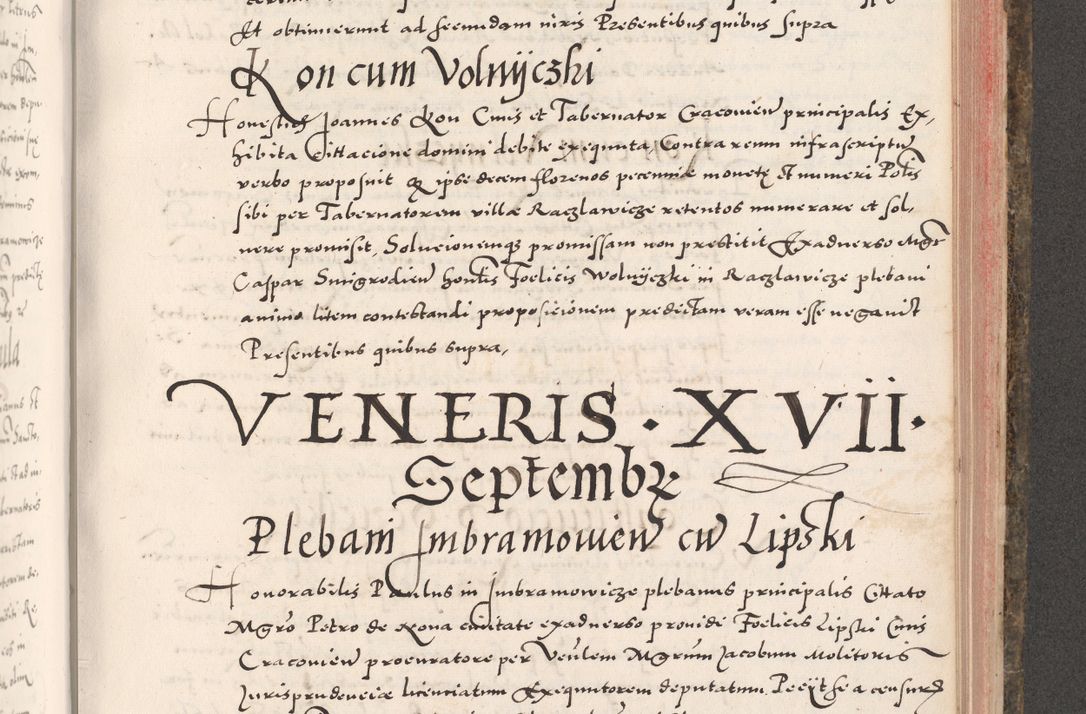 Et obtinuerunt ad secundam iuris Presentibus quibus supra
Kon cum Volnyczki
Honestus Joannes Kon Civis et Tabernator Cracovien principalis Ex,
hibita Cittacione domini debite exequuta, Contra reum infrascriptu
verbo proposuit Q ipse decem florenos pecuniæ monetę et numeri Polis
sibi per Tabernatorem villæ Raczlawicze retentos numerare et sol,
uere promisit, Solucionemqꝫ promissam non prestitit Exaduerso Mgr
Caspar Smigrodien honts Foelicis Wolnyczki in Raczlawicze plebani
animo litem contestandi proposicionem predictam veram esse negavit
Presentibus quibus supra,
VENERIS · XVII ·
Septembꝝ
Plebani Imbramowien cu Lipski
Honorabilis Paulus in Imbramowicze plebanus principalis Cittato
Mgro Petro de Nova civitate exaduerso providi Foelicis Lipski Civis
Cracovien procuratore per Venlem Mgrum Jacobum Molitoris
Jurisprudenciæ licenciatum Exequutorem deputatum. Peeyt se a censurꝭ